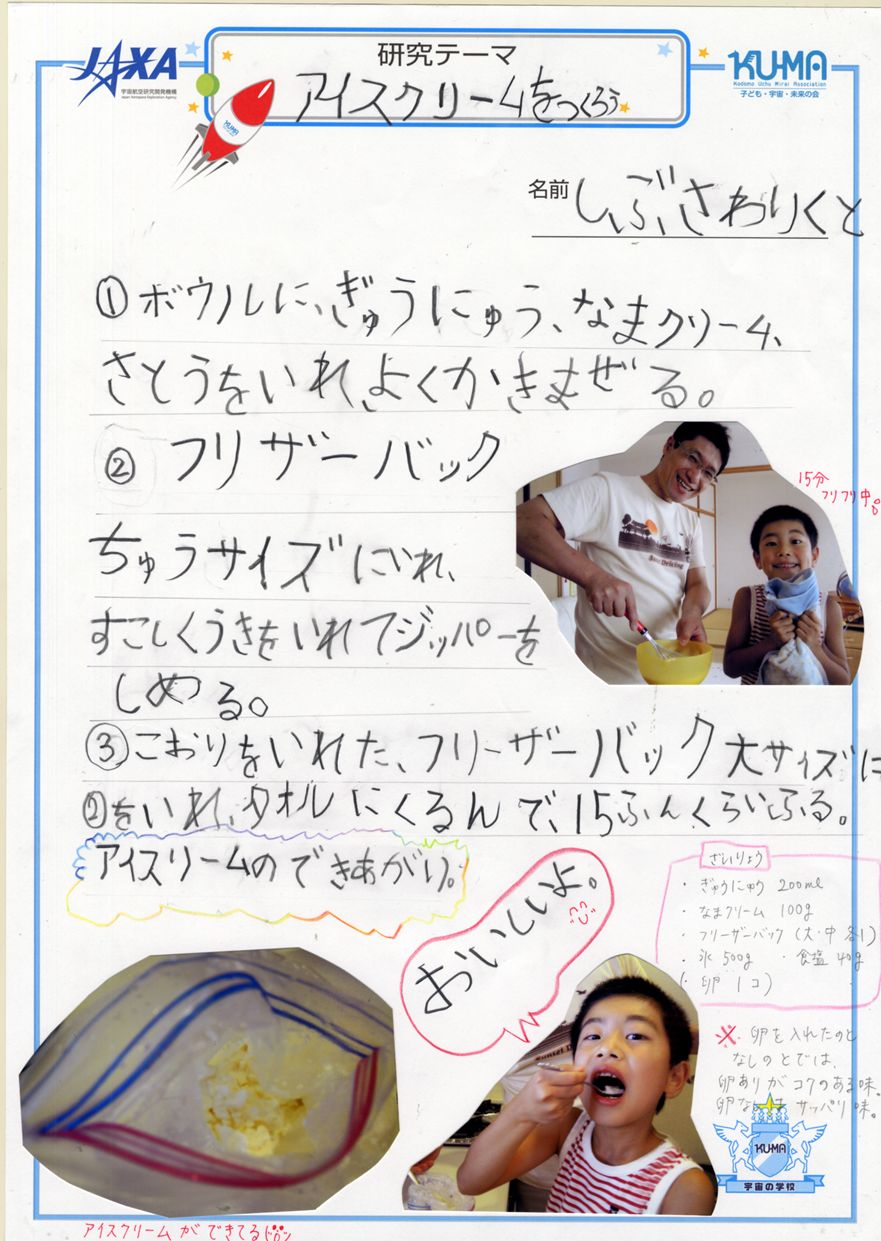 JAXA
宇宙航空研究開発機構
Japan Aerospace Exploration Agency
研究テーマ
アイスクリームをつくろう
KU-MA
Kodomo Uchu Mirai Association
子ども・宇宙・未来の会
KU-MA
名前 しぶさわりくと
①ボウルに、ぎゅうにゅう、なまクリーム、
さとうをいれ、よくかきまぜる。
② フリザーバック
ちゅうサイズにいれ、
すこしくうきをいれてジッパーを
しめる。
15分
フリフリ中。
③こおりをいれた、フリーザーバック大サイズに
②をいれ、タオルにくるんで、15ふんくらいふる。
アイスリームのできあがり。
おいしいよ。
ざいりょう
・ぎゅうにゅう 200ml
・なまクリーム 100g
・フリーザーバック (大・中 各1)
・氷 500g ・食塩 40g
(・卵 1コ)
※ 卵を入れたのと
なしのとでは、
卵ありがコクのある味。
卵なしは サッパリ味。
KU-MA
宇宙の学校
アイスクリームができてる